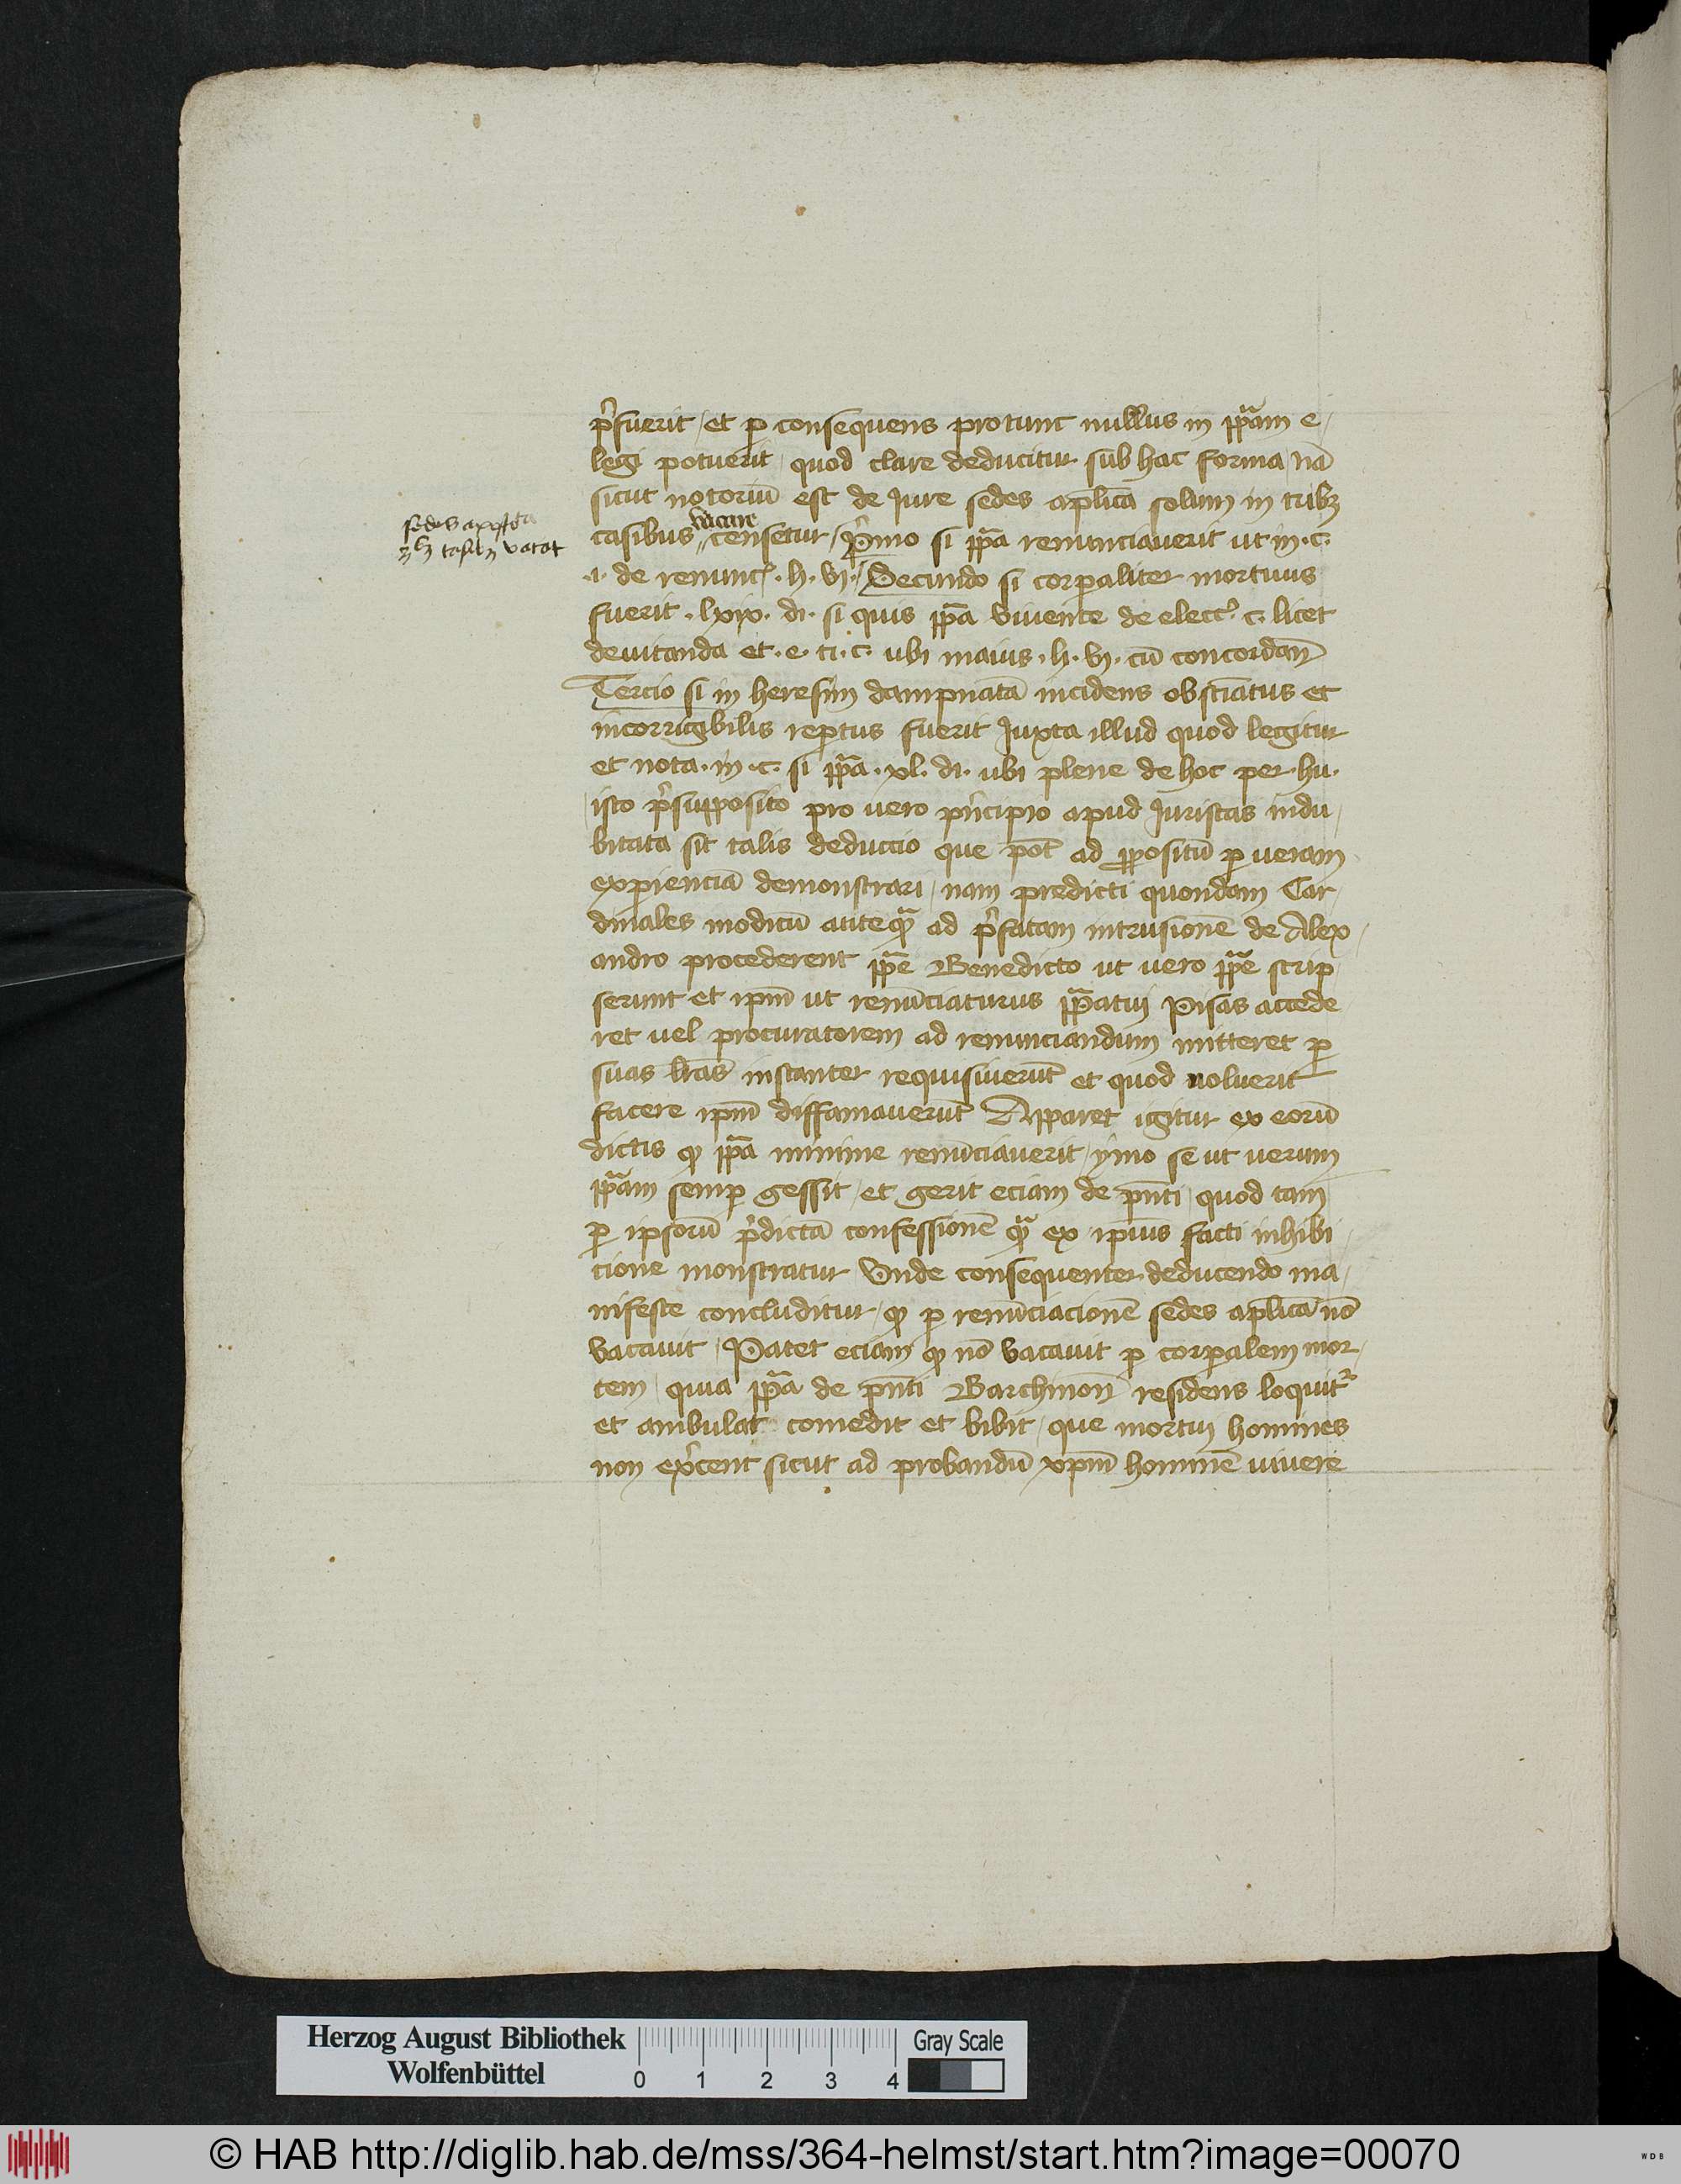 p̄fuerit / et ꝑ consequens protunc nullus in pp̄am e/
legi potuerit / quod clare deducitur sub hac forma / nā
sicut notoriū est de Jure sedes aplīca solum in tribꝫ
sedes
casibus vacare censetur / Primo si pp̄a renunciauerit ut in .c.
casibꝫ vacat
.i. de renunc̄ . li. vj. / Secundo si corꝑaliter mortuus
fuerit . lxix. di. si quis pp̄a viuente de elecc̄. c. licet
deuitanda et . e. ti. c. ubi maius . li. vj. cū concordan̄
Tercio si in heresim dampnatā incidens obstīatus et
incorrigibilis reꝑtus fuerit Juxta illud quod legitur
et nota. in .c. si pp̄a . xl. di. ubi plene de hoc per . hu.
isto p̄supposito pro uero pn̄cipio apud Juristas indu/
bitata sit talis deduccio que pōt ad ꝓpositū ꝑ ueram
exꝑienciā demonstrari / nam predicti quondam Car/
dinales modicū anteqꝫ̄ ad p̄fatam intrusionē de Alex/
andro procederent pp̄e Benedicto ut uero pp̄e scrip
serunt et ip̄m ut renūciaturus pp̄atui Pisas accede
ret uel procuratorem ad renunciandum mitteret ꝑ
suas lr̄as instanter requisiuerūt et quod noluerit
facere ip̄m diffamauerūt Apparet igitur ex eorū
dictis ꝙ pp̄a minime renūciauerit / ymo se ut uerum
pp̄am semꝑ gessit / et gerit eciam de pn̄ti / quod tam
ꝑ ipsorū p̄dictā confessionē qꝫ̄ ex ip̄ius facti inhibi/
cione monstratur Vnde consequenter deducendo ma/
nifeste concluditur / ꝙ ꝑ renūciacionē sedes aplīca nō
vacauit / Patet eciam ꝙ nō vacauit ꝑ corꝑalem mor/
tem / quia pp̄a de pn̄ti Barchinon̄ residens loquit᷑
et ambulat comedit et bibit / que mortui homines
non exercent sicut ad probandū xp̄m hominē uiuere
Herzog August Bibliothek
Wolfenbüttel
0 1 2 3 4
Gray Scale
© HAB http://diglib.hab.de/mss/364-helmst/start.htm?image=00070
WDB